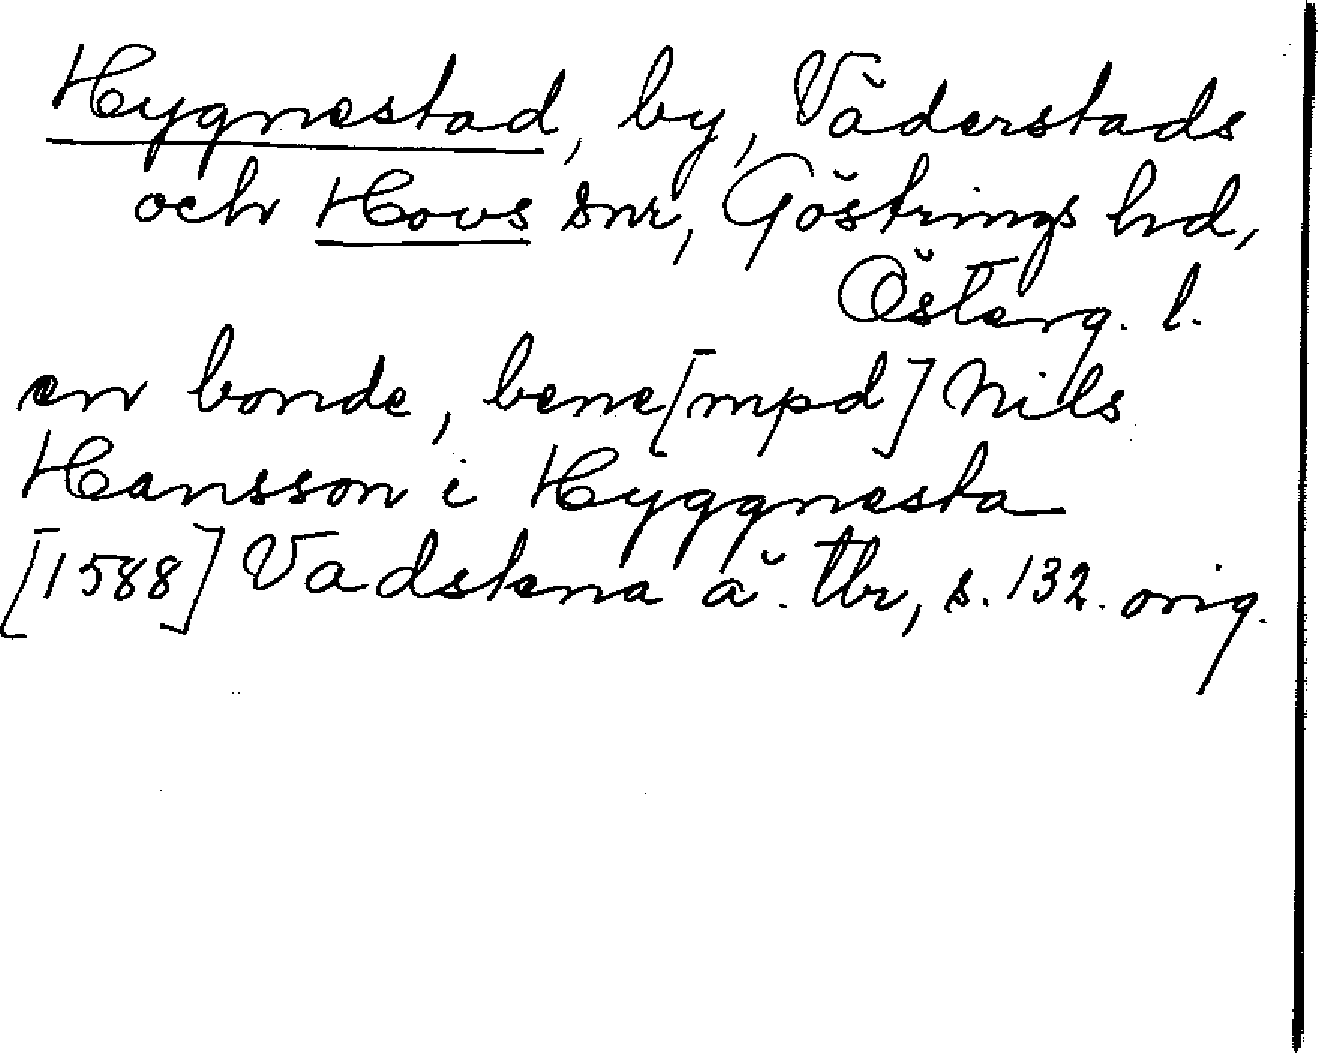 Hygnestad, by, Väderstads
och Hovs snr, Göstrings hd,
Österg. l.
en bonde, bene[mpd] Nils
Hansson i Hyggnesta
[1588] Vadstena ä. tbr, s. 132. orig.